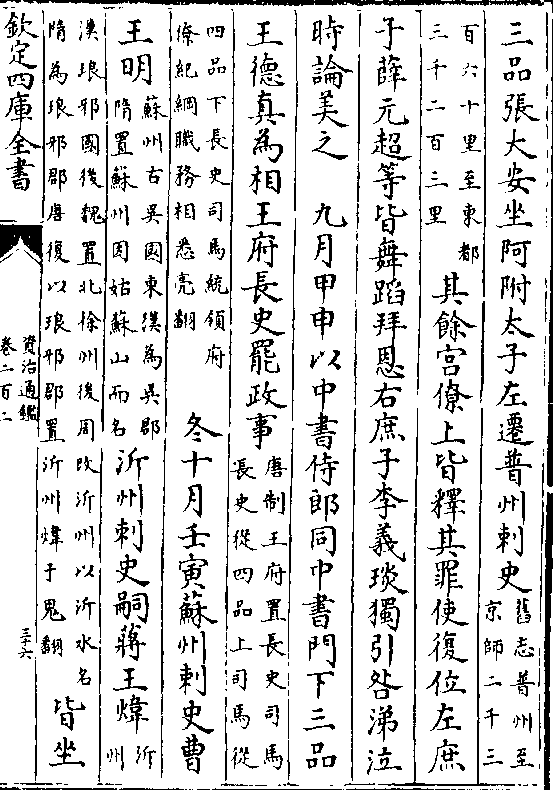 三品張大安坐阿附太子左遷普州刺史舊志普州至京師二千三
百六十里至東都三千二百三里其餘宮僚上皆釋其罪使復位左庶
子薛元超等皆舞蹈拜恩右庶子李義琰獨引咎涕泣
時論美之 九月甲申以中書侍郎同中書門下三品
王德真為相王府長史罷政事唐制王府置長史司馬長史從四品上司馬從
四品下長史司馬統領府僚紀綱職務相悉亮翻 冬十月壬寅蘇州刺史曹
王明蘇州古吳國東漢為吳郡隋置蘇州因姑蘇山而名沂州刺史嗣蔣王煒沂州
漢琅邪國後魏置北徐州後周改沂州以沂水名隋為琅邪郡唐復以琅邪郡置沂州煒于鬼翻皆坐
欽定四庫全書
資治通鑑
卷二百二
三十六